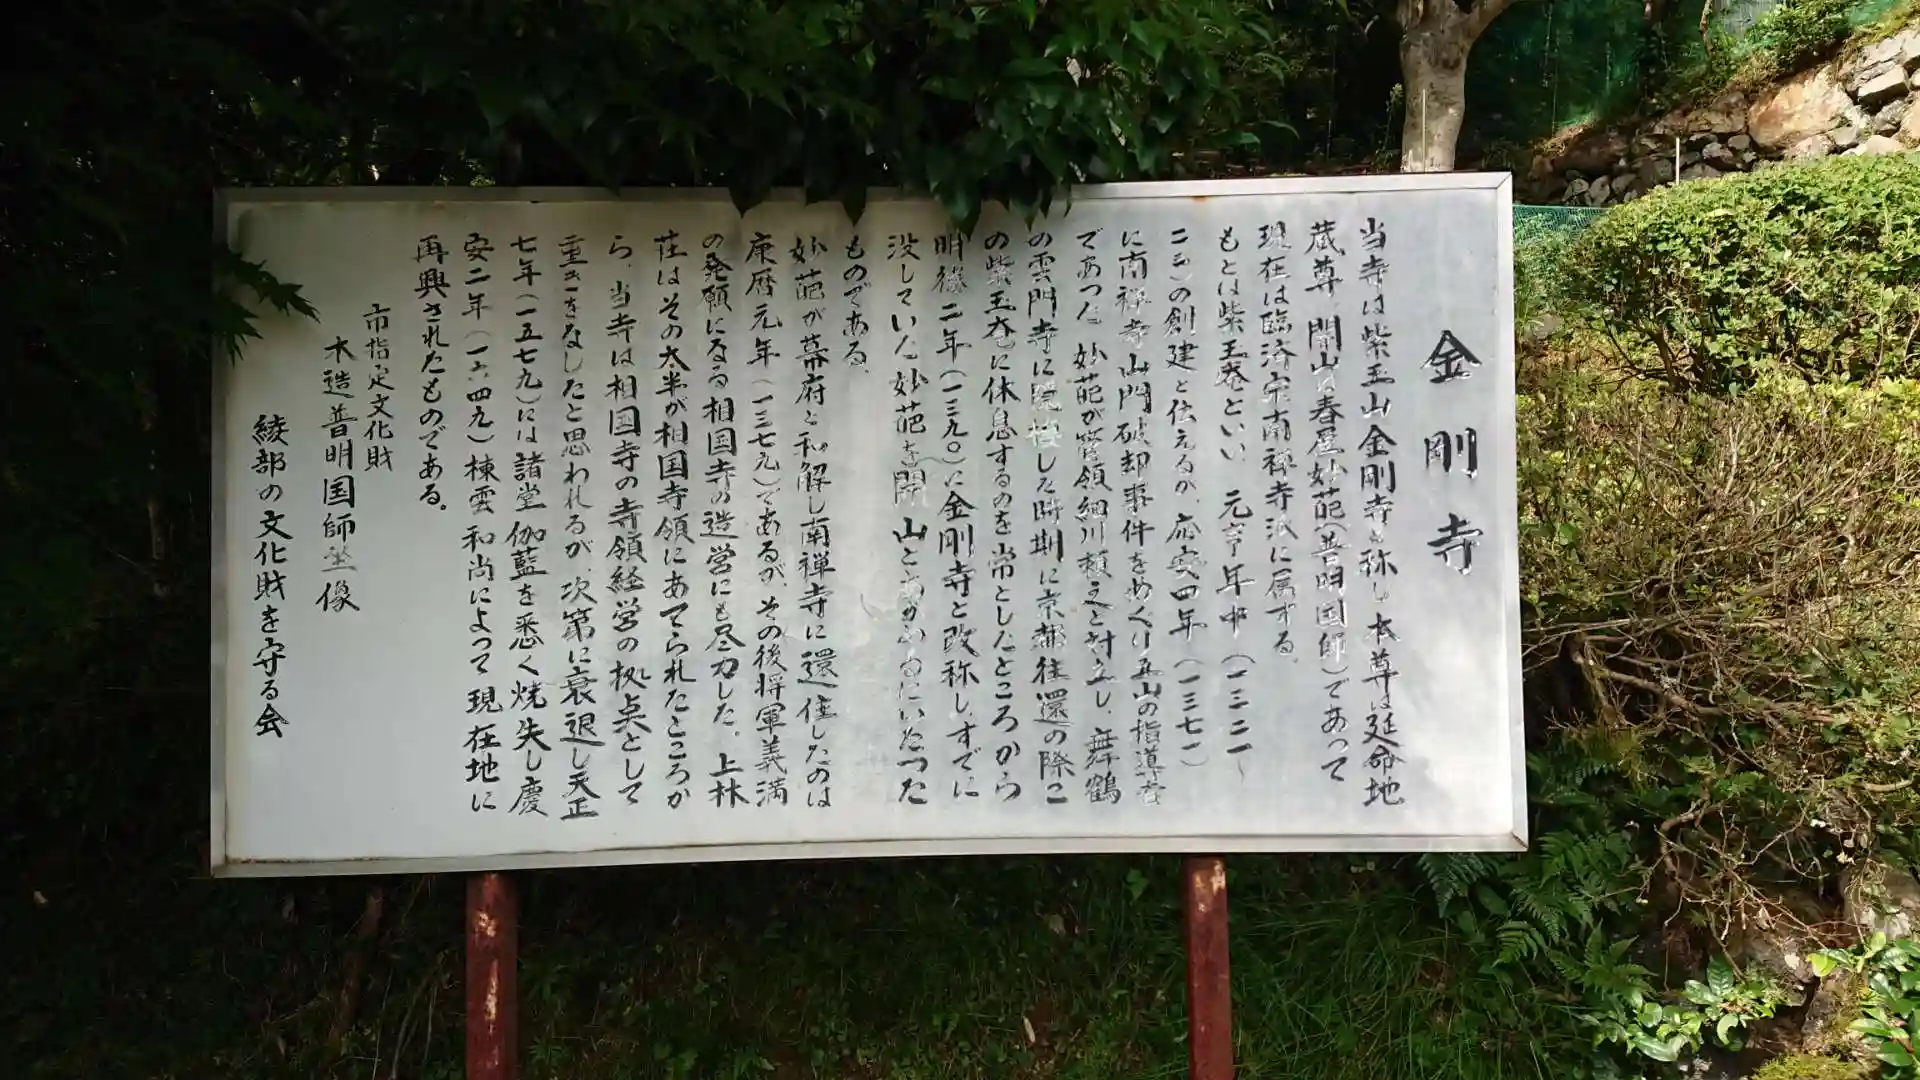 金剛寺
当寺は紫玉山金剛寺と称し、本尊は延命地
蔵尊、開山は春屋妙葩(普明国師)であって
現在は臨済宗南禅寺派に属する。
もとは紫玉庵といい 元亨年中(一三二一～
二三)の創建と伝えるが、応安四年(一三七一)
に南禅寺山門破却事件をめぐり五山の指導者
であった妙葩が管領細川頼之と対立し、舞鶴
の雲門寺に隠棲した時期に京都往還の際こ
の紫玉庵に休息するのを常としたところから
明徳二年(一三九〇)に金剛寺と改称し、すでに
没していた妙葩を開山とあがめるにいたった
ものである。
妙葩が幕府と和解し南禅寺に還住したのは
康暦元年(一三七九)であるが、その後将軍義満
の発願になる相国寺の造営にも尽力した。上林
荘はその大半が相国寺領にあてられたところか
ら、当寺は相国寺の寺領経営の拠点として
重きをなしたと思われるが、次第に衰退し天正
七年(一五七九)には諸堂伽藍を悉く焼失し慶
安二年(一六四九)棟雲和尚によって現在地に
再興されたものである。
市指定文化財
木造普明国師坐像
綾部の文化財を守る会